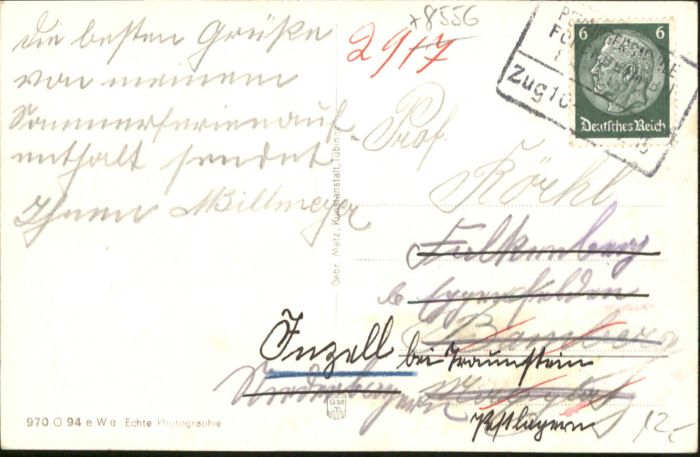 die besten Grüße
von meinem
Sommerferienauf
enthalt sendet
Ihnen Millmeyer
*8556
29/7
Zug 10
6 6
Deutsches Reich
Prof.
Röhrl
Falkenberg
b Eggenfelden
Bamberg
Inzell bei Traunstein
Niederbayern
Postlagernd
12,-
Gebr. Metz, Kunstanstalt, Tübingen
970 O 94 e W e Echte Photographie